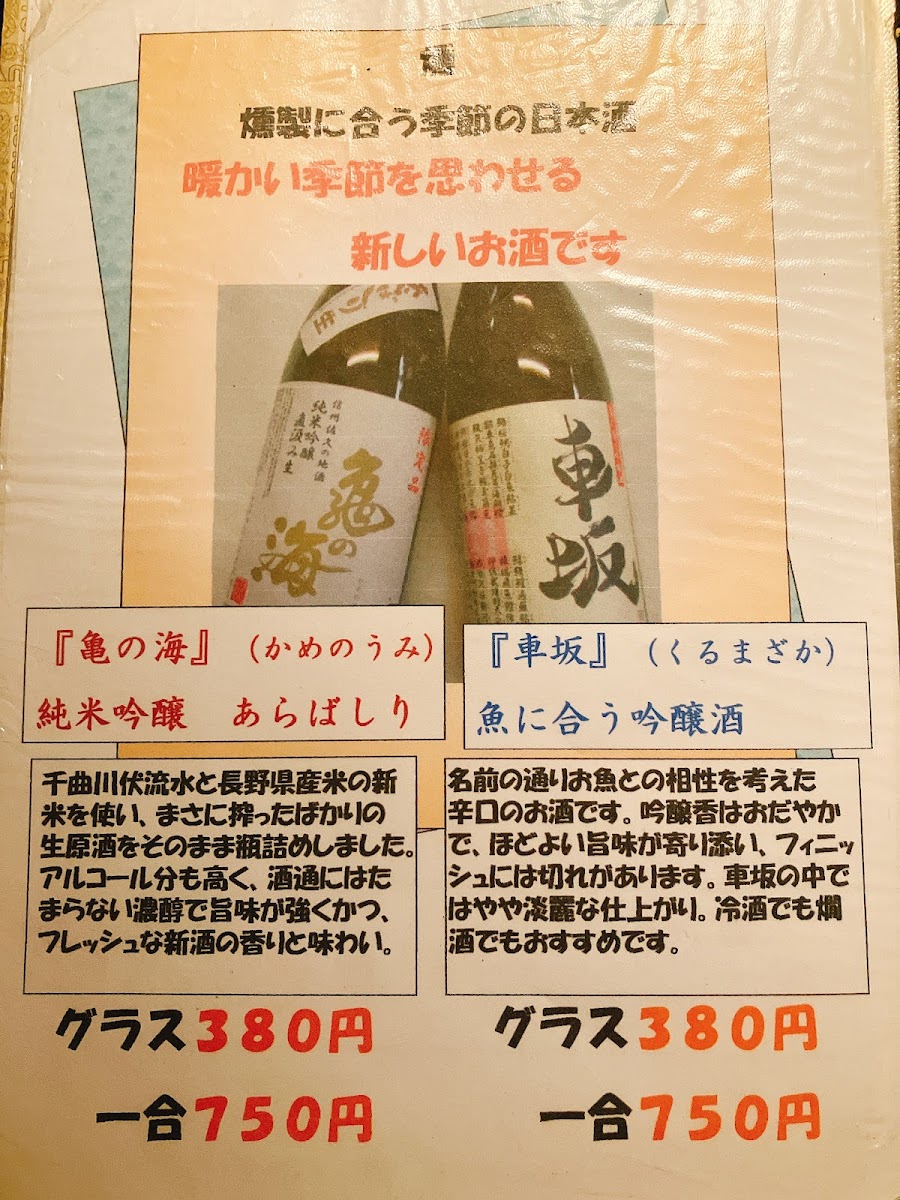 燻製に合う季節の日本酒
暖かい季節を思わせる
新しいお酒です
限定品
信州佐久の地酒
純米吟醸
直汲み生
亀の海
車坂
『亀の海』（かめのうみ）
純米吟醸　あらばしり
『車坂』（くるまざか）
魚に合う吟醸酒
千曲川伏流水と長野県産米の新
米を使い、まさに搾ったばかりの
生原酒をそのまま瓶詰めしました。
アルコール分も高く、酒通にはた
まらない濃醇で旨味が強くかつ、
フレッシュな新酒の香りと味わい。
グラス380円
一合750円
名前の通りお魚との相性を考えた
辛口のお酒です。吟醸香はおだやか
で、ほどよい旨味が寄り添い、フィニッ
シュには切れがあります。車坂の中で
はやや淡麗な仕上がり。冷酒でも燗
酒でもおすすめです。
グラス380円
一合750円